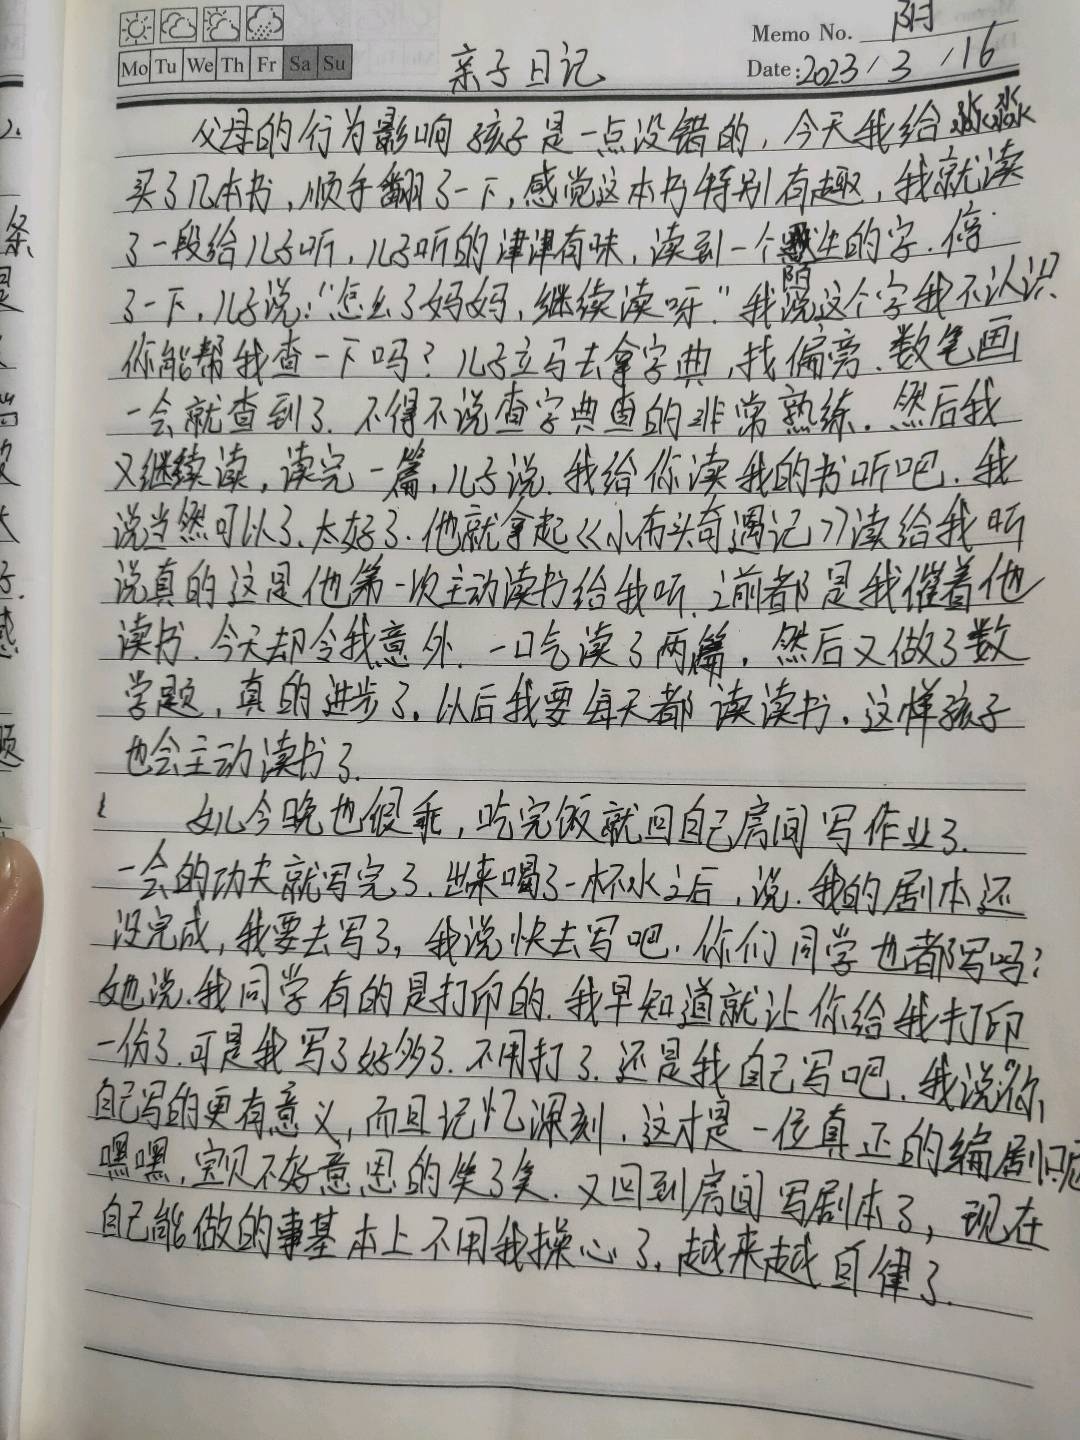 Memo No. 阴
Mo Tu We Th Fr Sa Su
亲子日记
Date: 2023/3/16
父母的行为影响孩子是一点没错的，今天我给淼淼
买了几本书，顺手翻了一下，感觉这本书特别有趣，我就读
了一段给儿子听，儿子听的津津有味，读到一个陌生的字.停
了一下，儿子说："怎么了妈妈，继续读呀."我说这个字我不认识
你能帮我查一下吗？儿子立马去拿字典，找偏旁.数笔画
一会就查到了.不得不说查字典查的非常熟练.然后我
又继续读，读完一篇，儿子说.我给你读我的书听吧.我
说当然可以了.太好了.他就拿起《小布头奇遇记》读给我听
说真的这是他第一次主动读书给我听.之前都是我催着他
读书.今天却令我意外.一口气读了两篇.然后又做了数
学题，真的进步了.以后我要每天都读读书.这样孩子
也会主动读书了.
女儿今晚也很乖，吃完饭就回自己房间写作业了.
一会的功夫就写完了.出来喝了一杯水之后，说.我的剧本还
没完成，我要去写了，我说快去写吧.你们同学也都写吗？
她说.我同学有的是打印的.我早知道就让你给我打印
一份了.可是我写了好多了.不用打了.还是我自己写吧.我说你
自己写的更有意义，而且记忆深刻.这才是一位真正的编剧呢
嘿嘿，宝贝不好意思的笑了笑.又回到房间写剧本了，现在
自己能做的事基本上不用我操心了.越来越自律了.